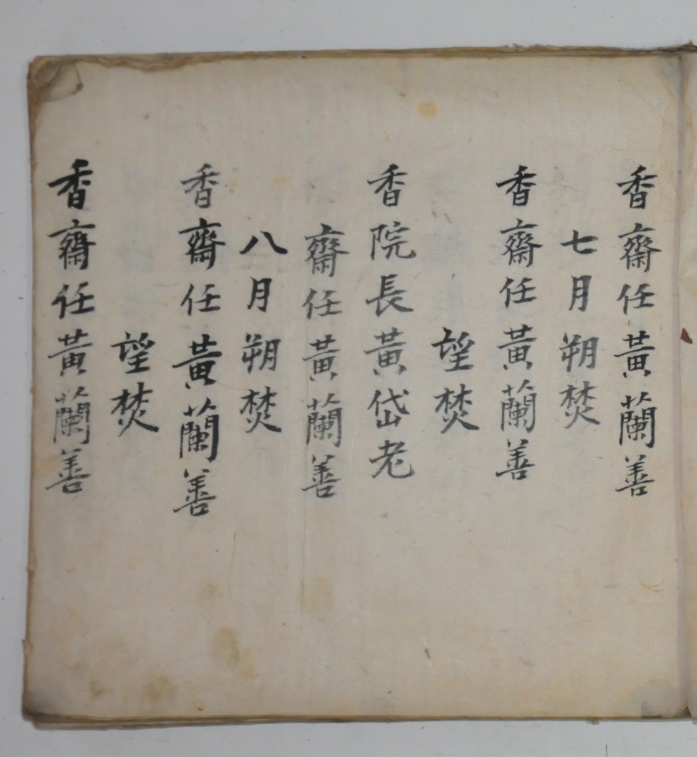 香齋任黃蘭善
七月朔焚
香齋任黃蘭善
望焚
香院長黃岱老
齋任黃蘭善
八月朔焚
香齋任黃蘭善
望焚
香齋任黃蘭善